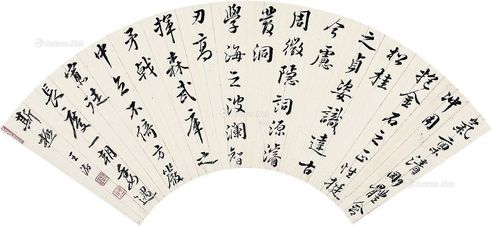 氣禀清剛體含
沖用
抱金石之正性挺
松桂
之貞姿識達古
今慮
周微隱詞源濬
發洞
學海之波瀾智
刃高
揮森武庫之
矛戟
立不倚方嚴
中
長度一朝委遇
斯